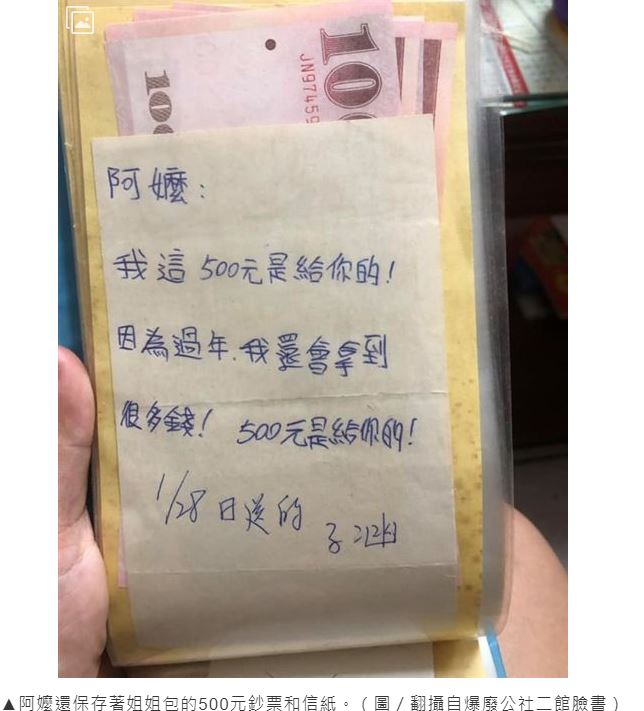 100
JN97459
100
阿嬤：
我這500元是給你的！
因為過年.我還會拿到
很多錢！ 500元是給你的！
1/28日送的 子
▲阿嬤還保存著姐姐包的500元鈔票和信紙。（圖／翻攝自爆廢公社二館臉書）